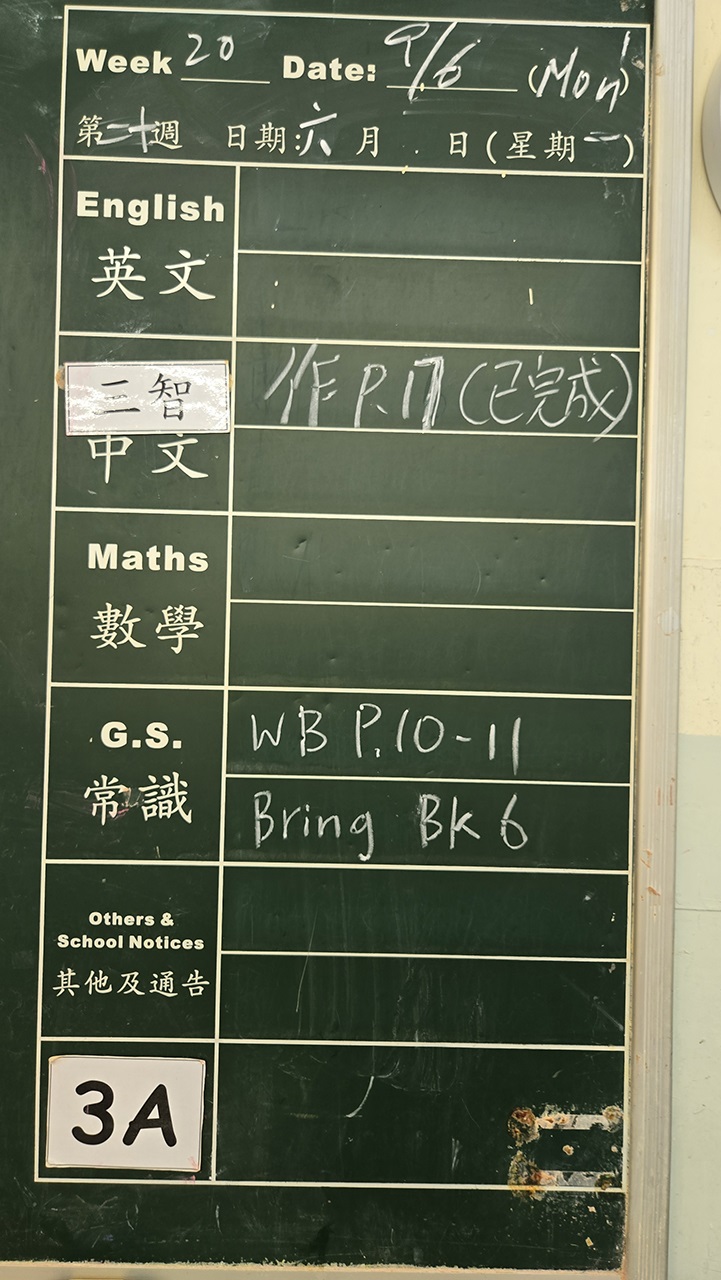 Week 20 Date: 9/6 (Mon)
第二十週 日期:六月 日(星期一)
English
英文
三智
作 P.17 (已完成)
中文
Maths
數學
G.S.
常識
WB P.10-11
Bring Bk 6
Others &
School Notices
其他及通告
3A